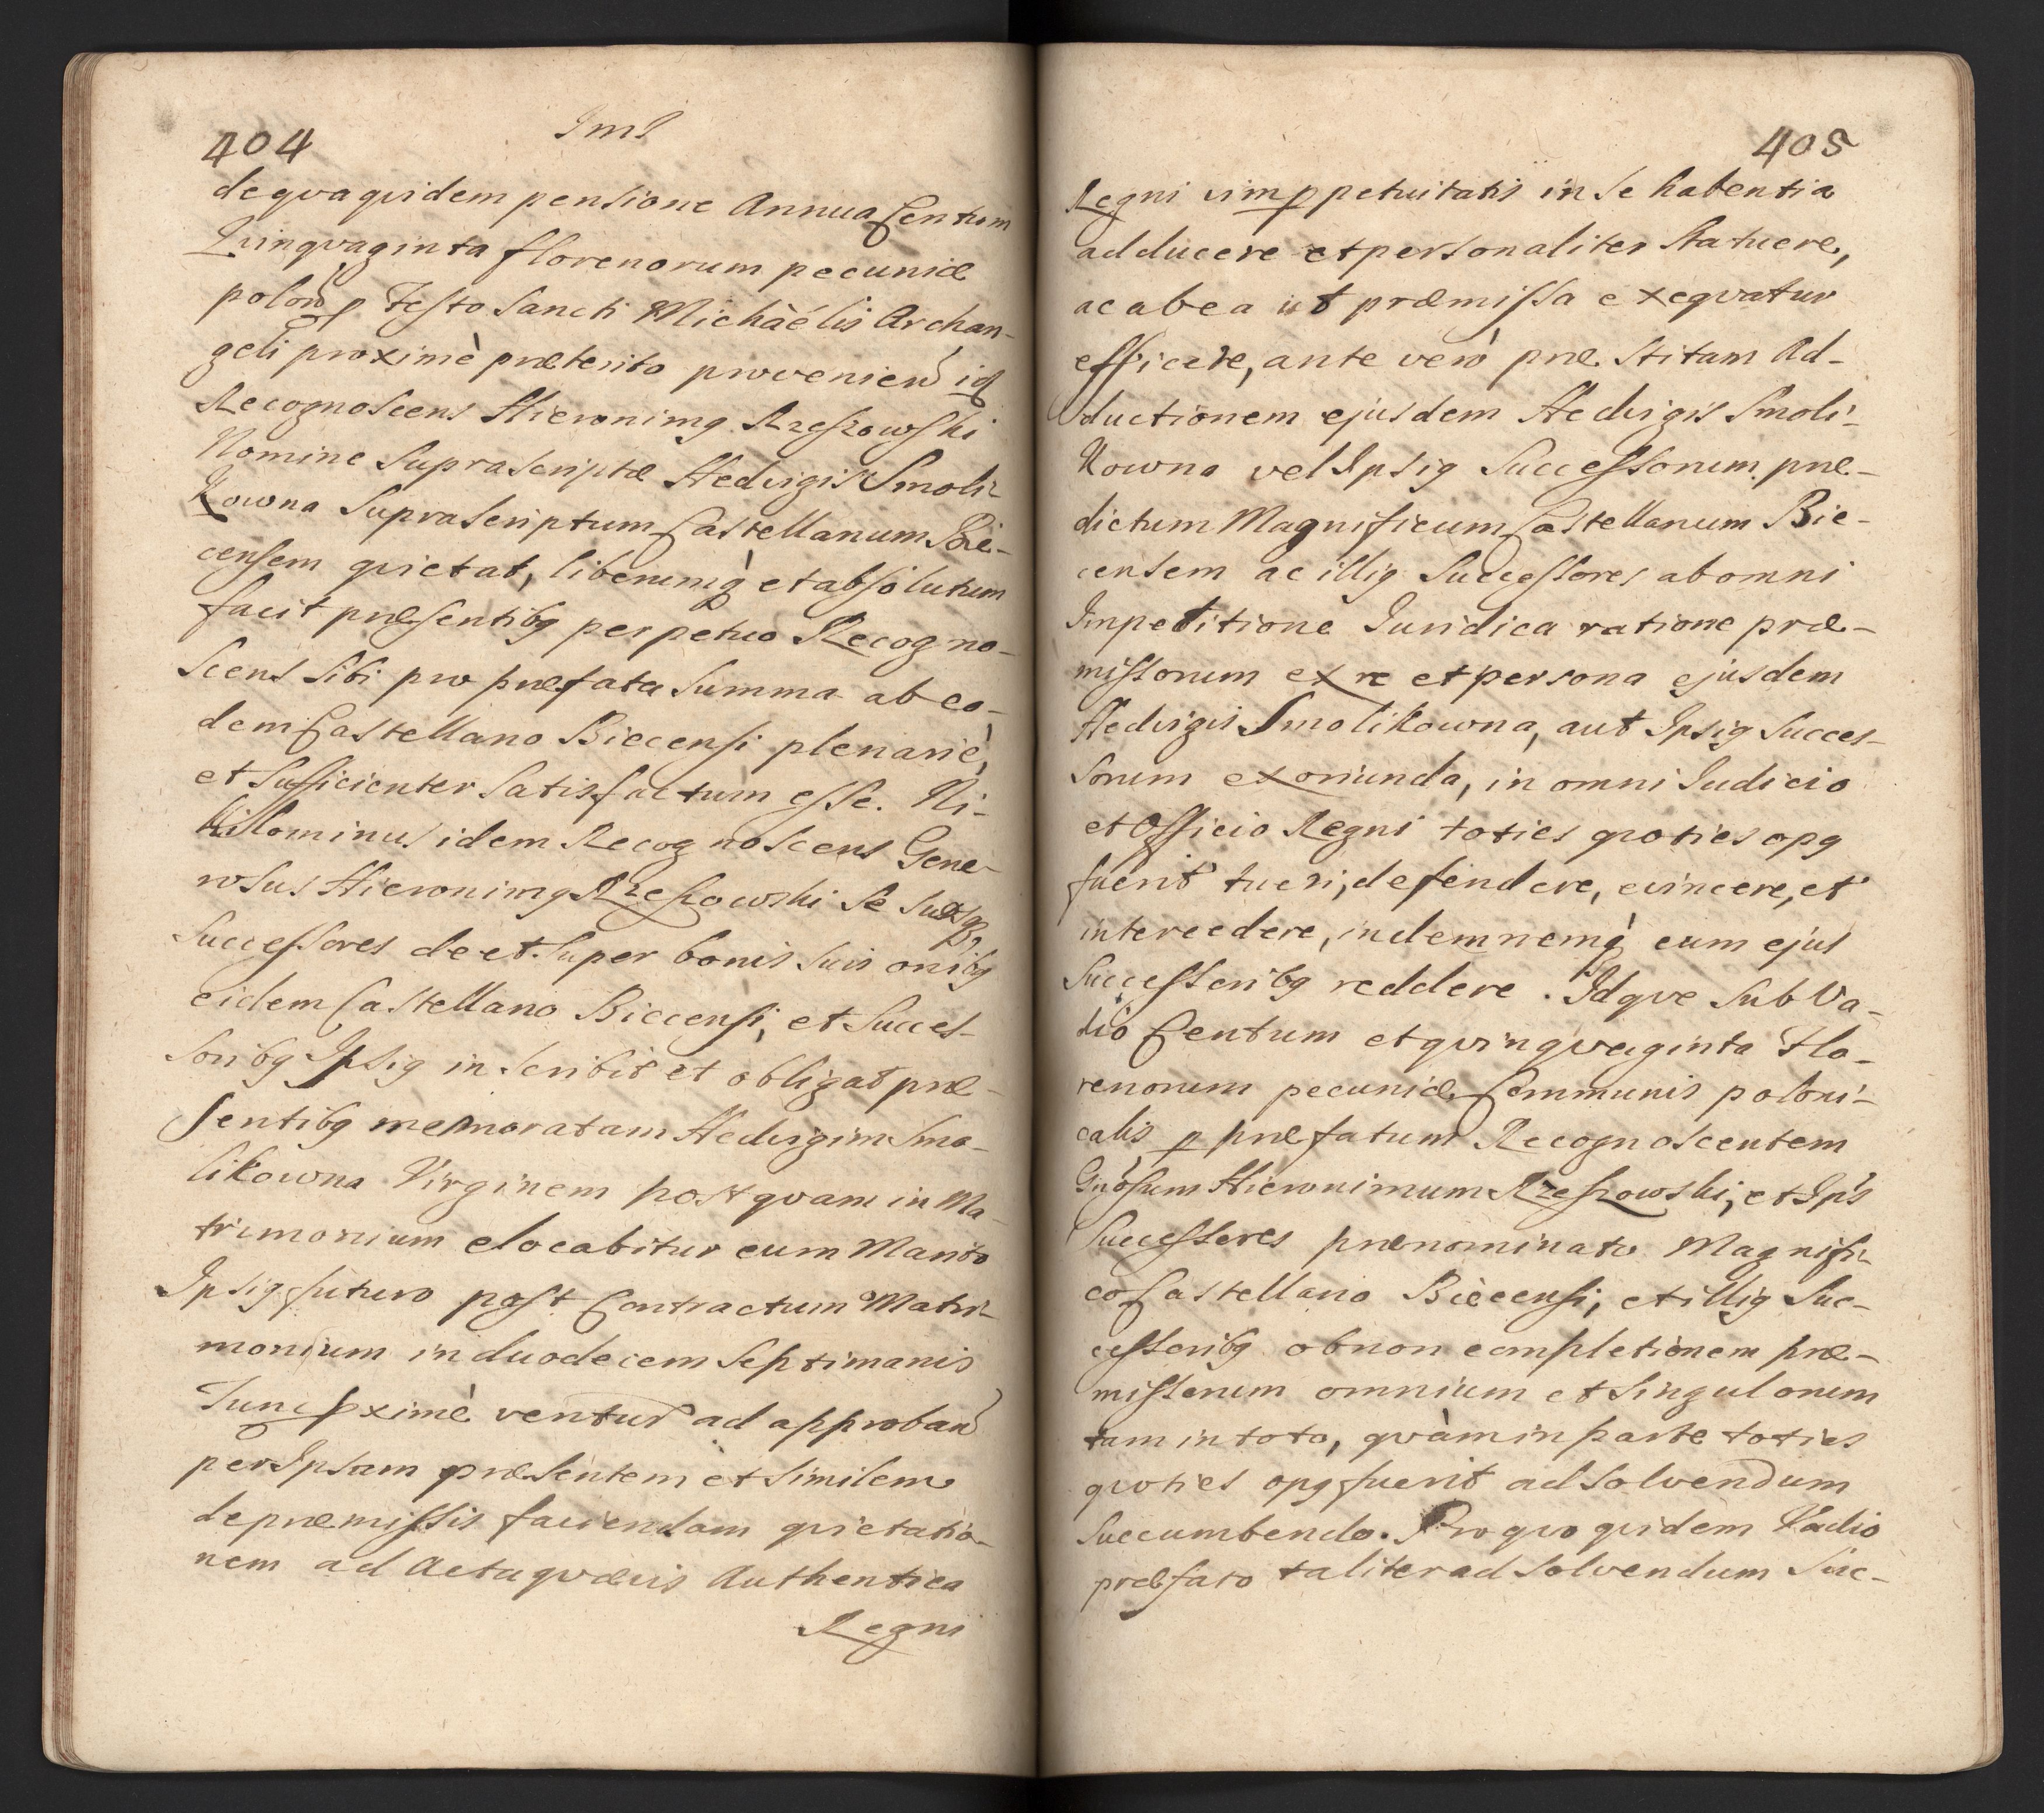 404
Iml
de qva qvidem pensione Annua Centum
Qvinqvaginta florenorum pecuniæ
polon p Festo Sancti Michàélis Archan-
geli proximè præterito provenien id
Recognoscens Hieronimg Rzeszowski
Nomine Suprascriptæ Hedvigis Smoli-
Kowna Suprascriptum Castellanum Bie-
censem qvietat, liberumq et absolutum
facit præsentibg perpetuo Recogno-
scens Sibi pro præfata Summa ab eo-
dem Castellano Biecensi plenariè,
et Sufficienter Satisfactum esse. Ni-
hilominus idem Recognoscens Gene-
rosus Hieronimg Rzeszowski Se Suosq
Successores de et Super bonis Suis onibg
eidem Castellano Biecensi, et Succes-
soribg Ipsig inscribit et obligat præ-
sentibg memoratam Hedvigim Smo-
likowna Virginem post qvam in Ma-
trimonium elocabitur cum Marito
Ipsig futuro post Contractum Matri-
monium in duodecem Septimanis
Tunc pximè ventur ad approban
per Ipsam præsentem et Similem
de præmissis faciendam qvietatio-
nem ad Acta qvævis Authentica
Regni
405
Regni vim ppetuitatis in Se habentia
adducere et personaliter Statuere,
ac ab ea ut præmissa exeqvatur
efficere, ante verò præstitam Ad-
ductionem ejusdem Hedvigis Smoli-
Kowna vel Ipsig Successorum præ-
dictum Magnificum Castellanum Bie-
censem ac illig Successores ab omni
Impetitione Iuridica ratione præ-
missorum ex re et persona ejusdem
Hedvigis Smolikowna, aut Ipsig Succes-
sorum exoriunda, in omni Iudicio
et Officio Regni toties qvoties opg
fuerit tueri, defendere, evincere, et
intercedere, indemnemq eum ejus
Successoribg reddere. Idqve Sub Va-
dio Centum et qvinqvaginta Flo-
renorum pecuniæ Communis poloni-
calis p præfatum Recognoscentem
Gnosum Hieronimum Rzeszowski, et Ips
Successores prænominato Magnifi-
co Castellano Biecensi, et illig Suc-
cessoribg ob non completionem præ-
missorum omnium et Singulorum
tam in toto, qvàm in parte toties
qvoties opg fuerit ad Solvendum
Succumbendo. Pro qvo qvidem Vadio
præfato taliter ad Solvendum Suc-